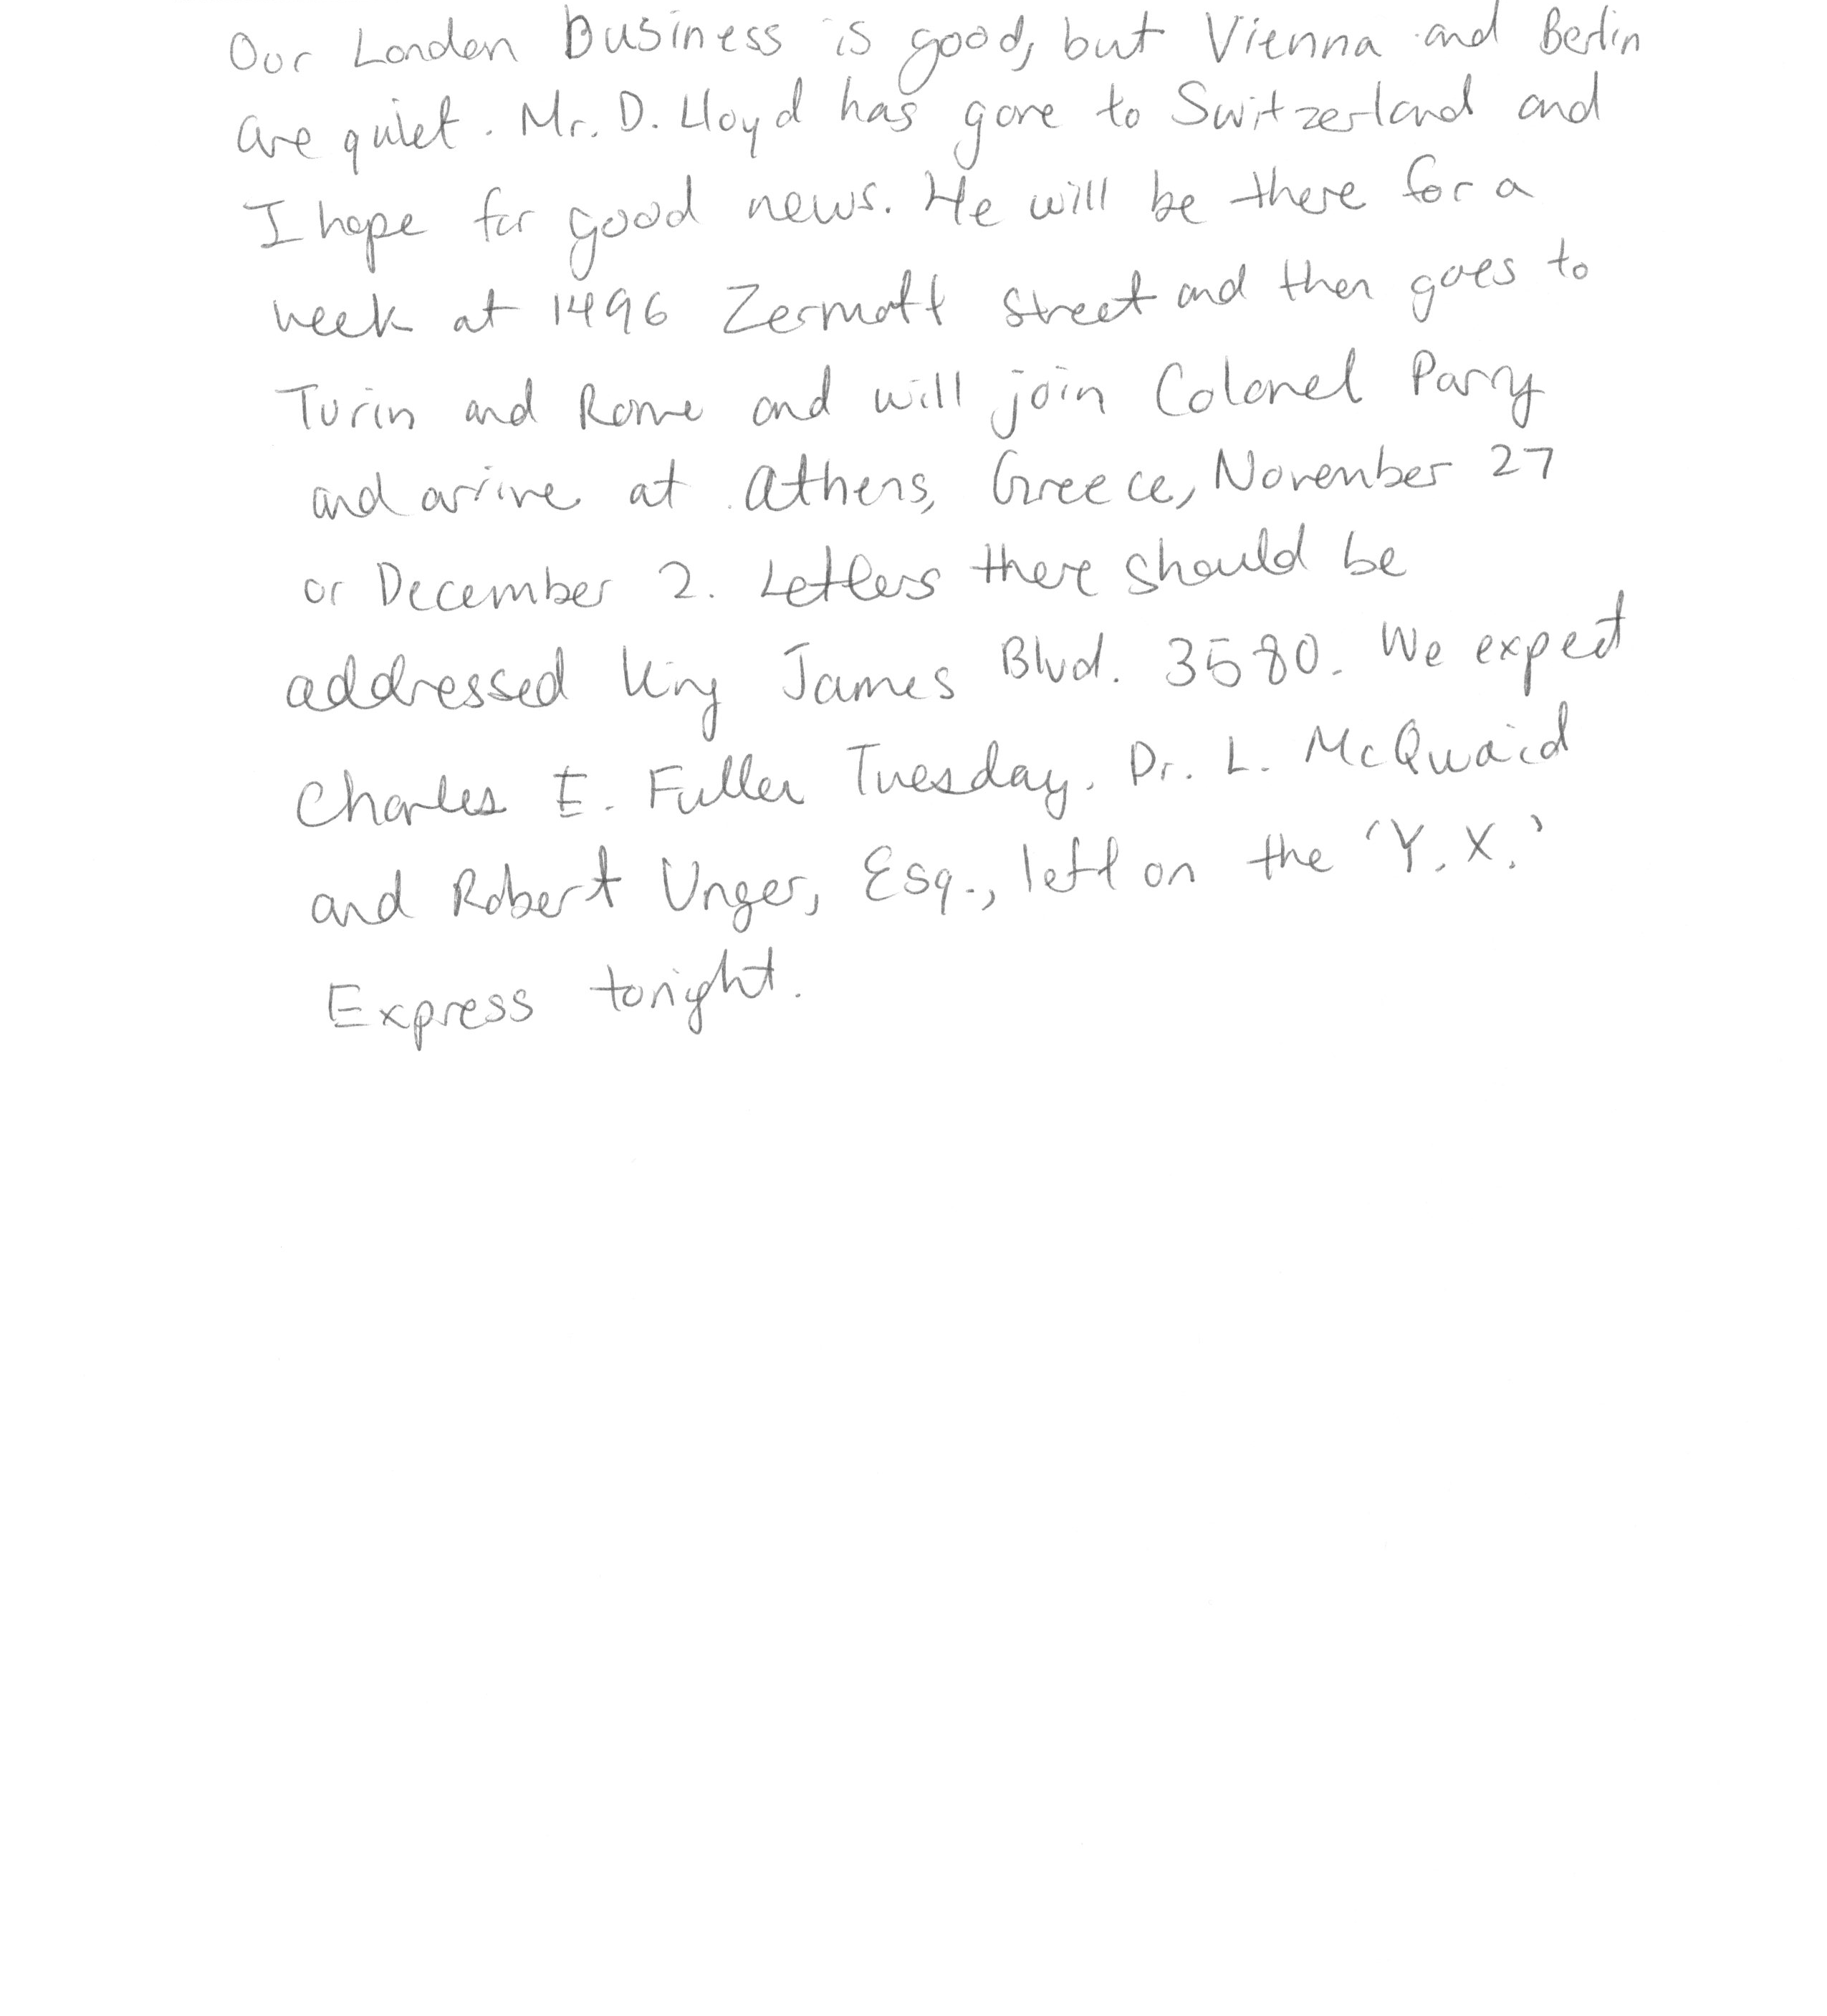 Our London Business is good, but Vienna and Berlin
are quiet. Mr. D. Lloyd has gone to Switzerland and
I hope for good news. He will be there for a
week at 1496 Zermott Street and then goes to
Turin and Rome and will join Colonel Parry
and arrive at Athens, Greece, November 27
or December 2. Letters there should be
addressed King James Blvd. 3580. We expect
Charles E. Fuller Tuesday. Dr. L. McQuaid
and Robert Unger, Esq., left on the 'Y.X.'
Express tonight.